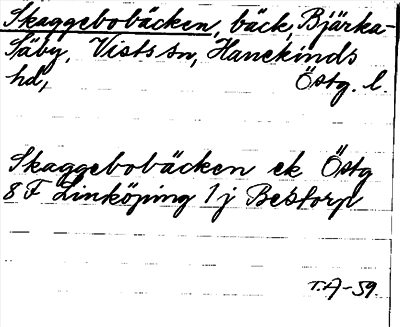 Skaggebobäcken, bäck, Bjärka-
Säby, Vists sn, Hanekinds
hd, Östg. l.
Skaggebobäcken ek Östg
8 F Linköping 1 j Bestorp
T.A-59.